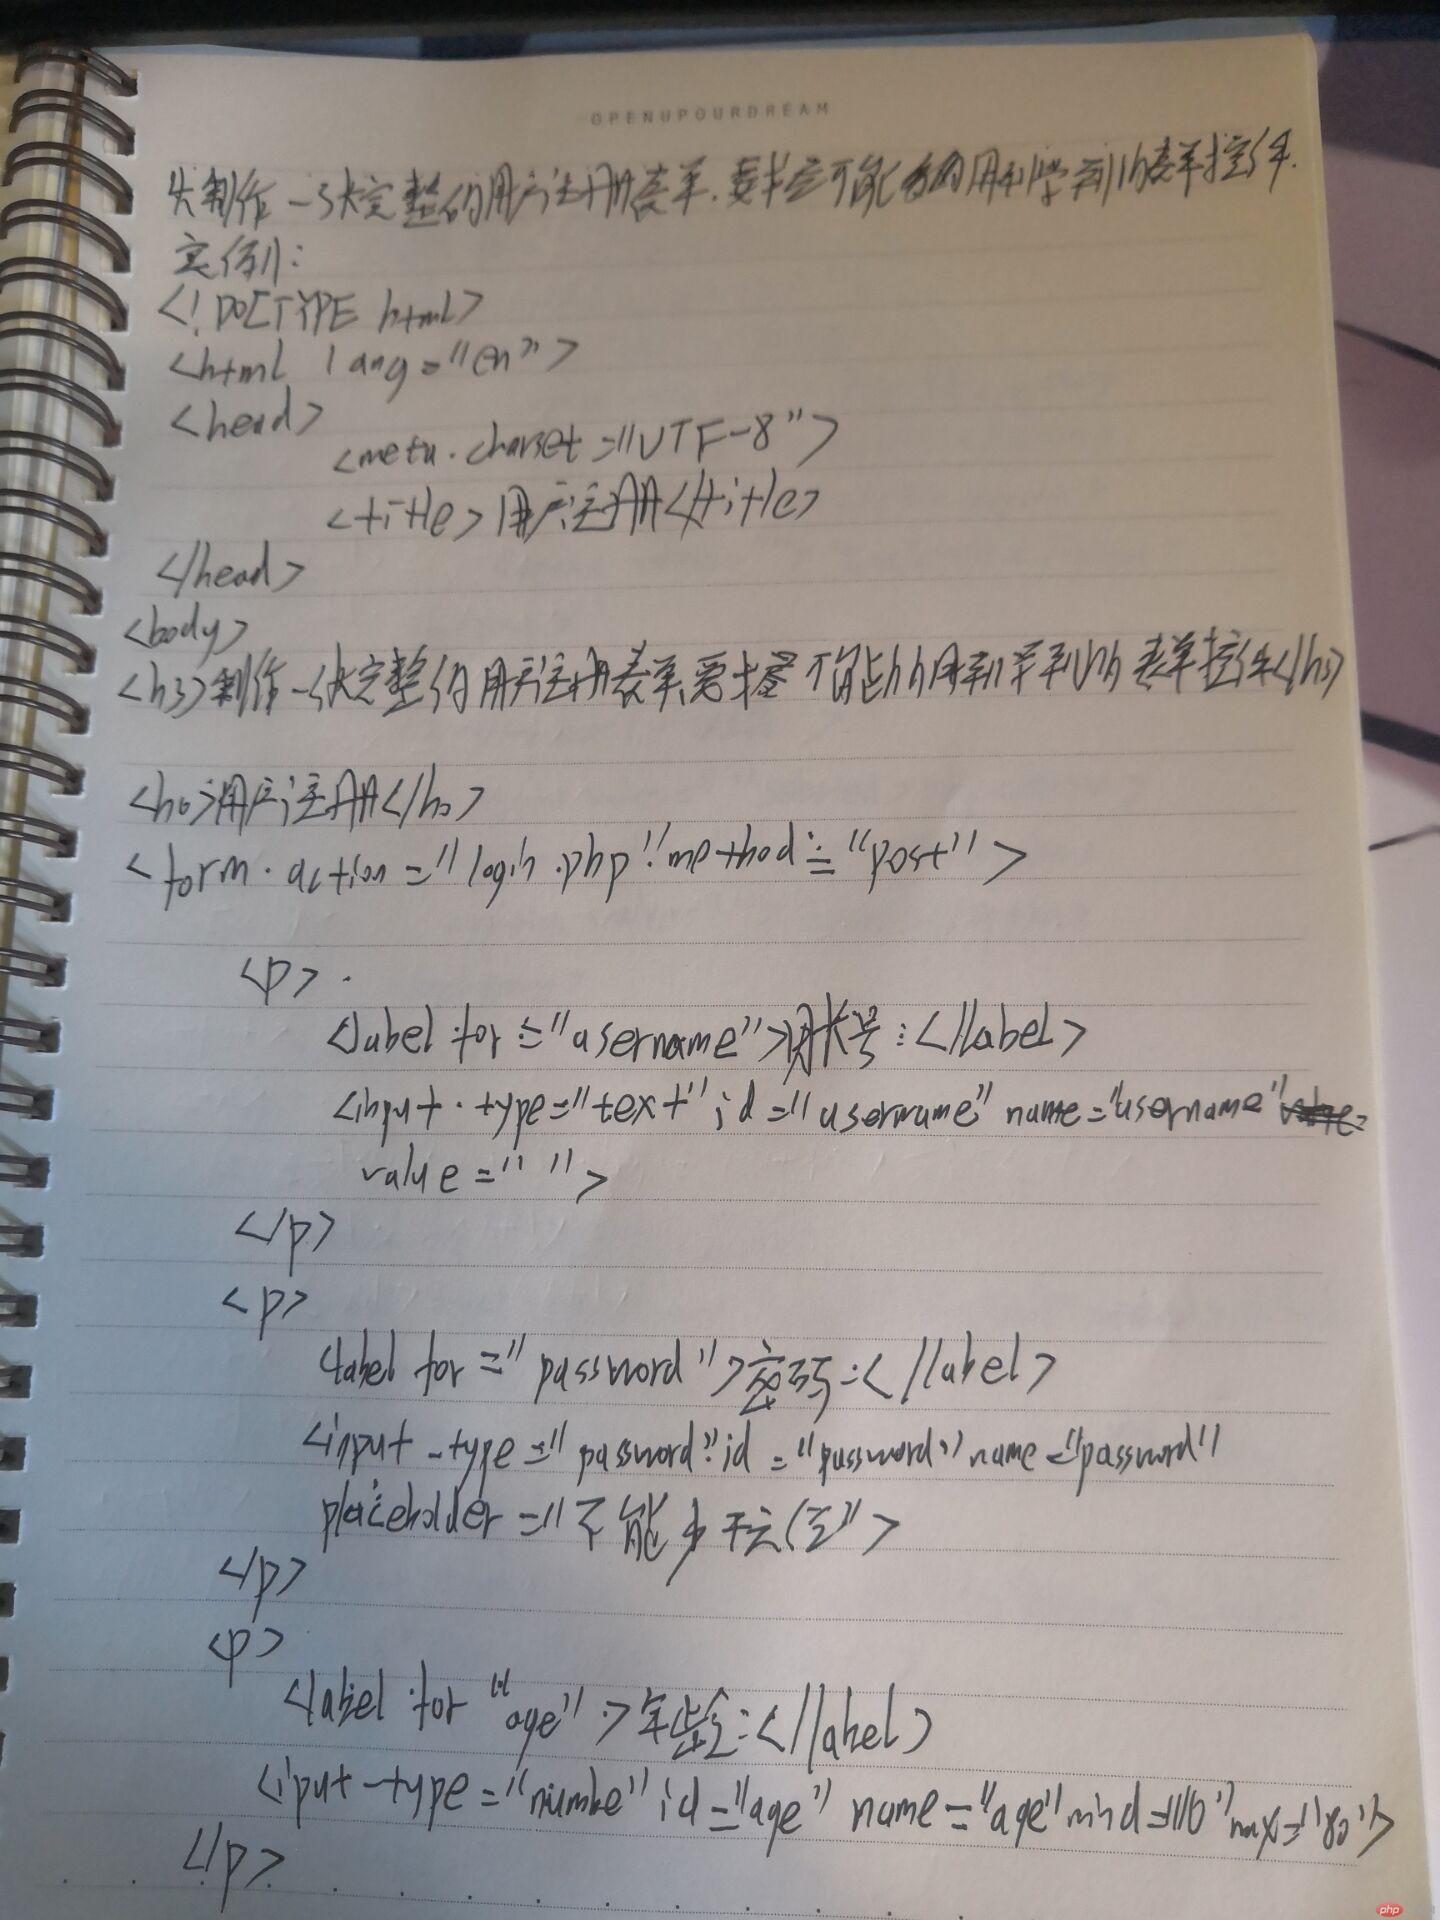 OPENUPOURDREAM
制作一张完整的用户注册表单.要求尽可能多的用到学到的表单控件.
实例:
<!DOCTYPE html>
<html lang="en">
<head>
<meta charset="UTF-8">
<title>用户注册</title>
</head>
<body>
<h3>制作一张完整的用户注册表单 能 的用到学到的表单控件</h3>
用户注册
<form action="login.php" method="post">
<p>
<label for="username">账号:</label>
<input type="text" id="username" name="username"
value=" ">
</p>
<p>
<label for="password">密码:</label>
<input type="password" id="password" name="password"
placeholder="不能少于六位">
</p>
<p>
<label for "age">年龄:</label>
<iput type="numbe" id="age" name="age" max="80">
</p>
php